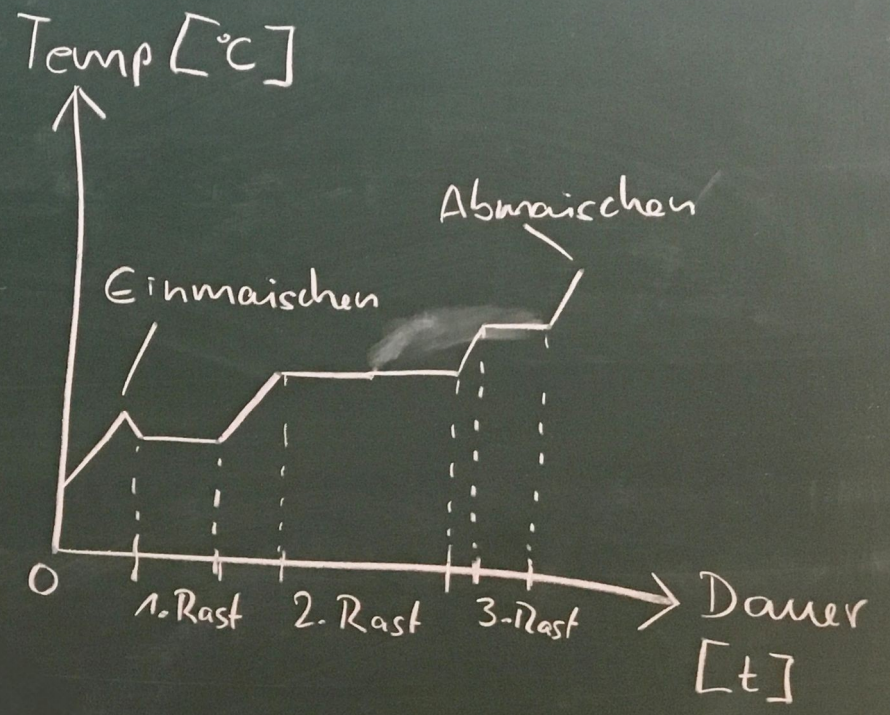 Temp [°C]
Abmaischen
Einmaischen
0
1. Rast 2. Rast 3. Rast
Dauer
[t]